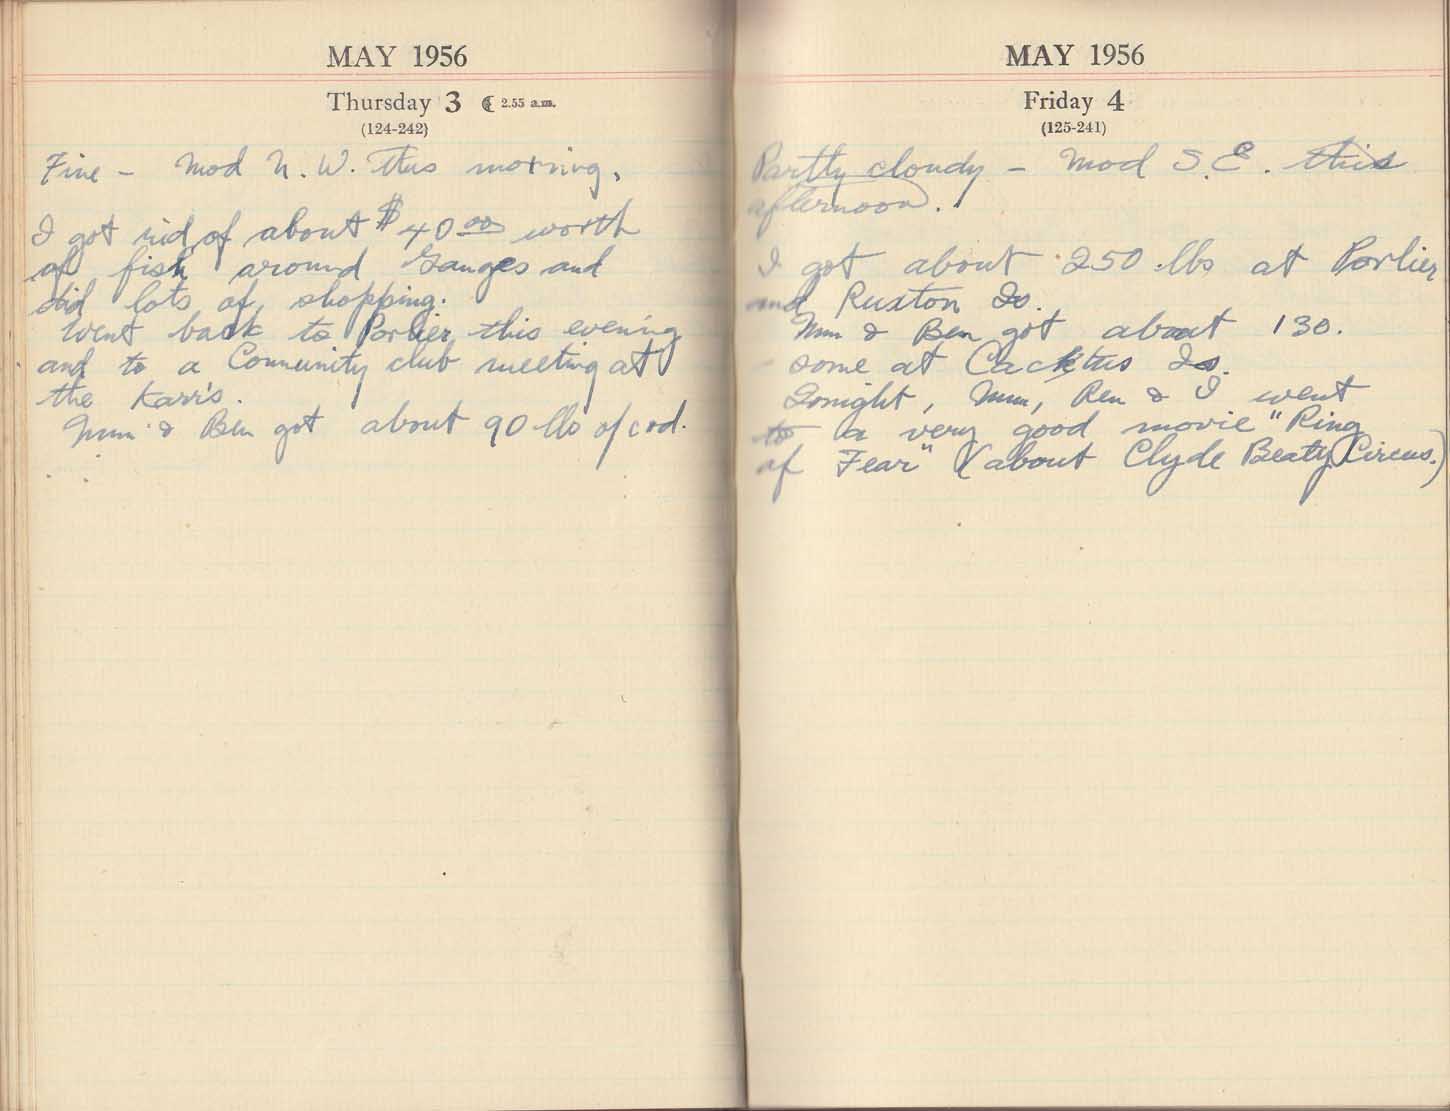 MAY 1956
Thursday 3 ☾ 2.55 a.m.
(124-242)
Fine - Mod N. W. this morning.
I got rid of about $40.00 worth
of fish around Ganges and
did lots of shopping.
Went back to Porlier this evening
and to a Community club meeting at
the Karr's.
Mum & Ben got about 90 lbs of cod.
MAY 1956
Friday 4
(125-241)
Partly cloudy - Mod S.E. this
afternoon.
I got about 250 lbs at Porlier
and Ruxton Is.
Mum & Ben got about 130.
- some at Cacktus Is.
Tonight, Mum, Ben & I went
to a very good movie "Ring
of Fear" (about Clyde Beaty Circus.)